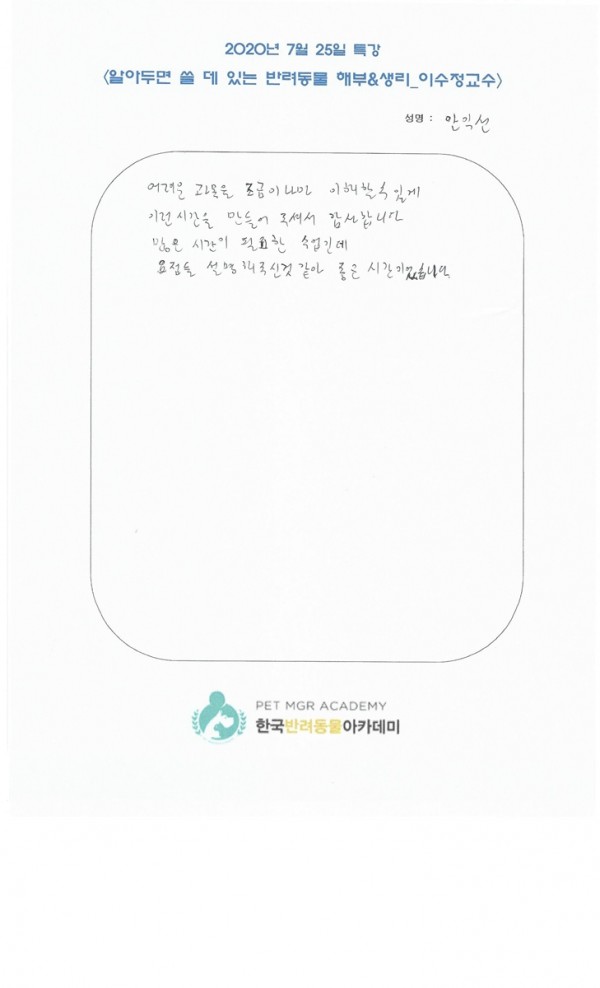 2020년 7월 25일 특강
<알아두면 쓸 데 있는 반려동물 해부&생리_이수정교수>
성명 : 안익선
어려운 과목을 조금이나마 이해할수 있게
이런시간을 만들어 주셔서 감사합니다
많은 시간이 필요한 수업인데
요점들 설명해주신것 같아 좋은 시간이었습니다
PET MGR ACADEMY
한국반려동물아카데미